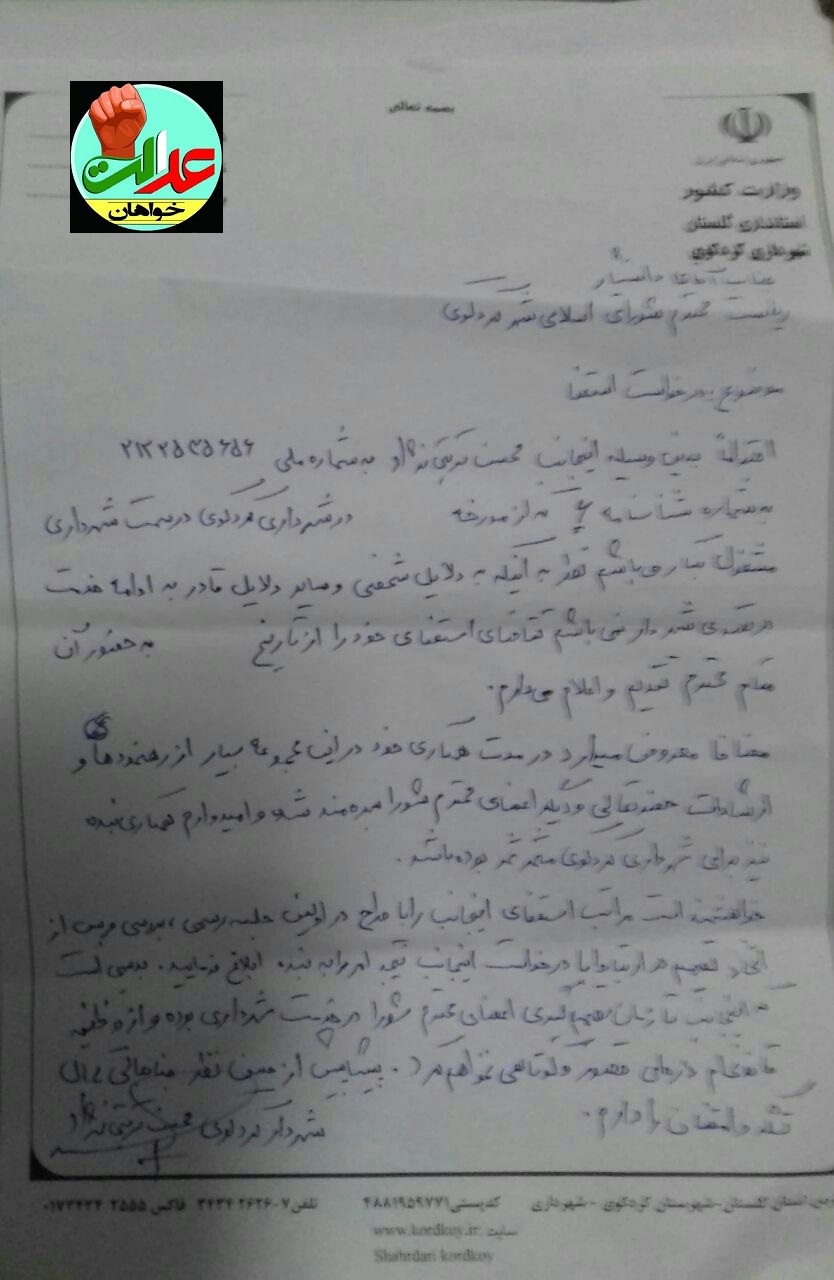 عدالت
خواهان
بسمه تعالی
جمهوری اسلامی ایران
وزارت کشور
استانداری گلستان
شهرداری کردکوی
جناب آقای دانشیار
ریاست محترم شورای اسلامی شهر کردکوی
موضوع: درخواست استعفا
احتراماً بدین وسیله اینجانب محسن به شماره ملی
به شماره شناسنامه ۶ که از مورخه در شهرداری کردکوی در سمت شهرداری
مشغول بکار می باشم نظر به اینکه به دلایل شخصی و سایر دلایل قادر به ادامه خدمت
در تصدی شهردار نمی باشم تقاضای استعفای خود را از تاریخ به حضور آن
مقام محترم تقدیم و اعلام می دارم.
مضافا معروض میدارد در مدت همکاری خود در این مجموعه بسیار از رهنمودها و
ارشادات حضرتعالی و دیگر اعضای محترم شورا بهره مند شده و امیدوارم همکاری بنده
نیز برای شهرداری کردکوی مثمر ثمر بوده باشد.
خواهشمند است مراتب استعفای اینجانب را با طرح در اولین جلسه رسمی، بررسی و پس از
اتخاذ تصمیم در ارتباط با درخواست اینجانب نتیجه امر را به بنده ابلاغ فرمایید. بدیهی است
که اینجانب تا زمان تصمیم گیری اعضای محترم شورا در خدمت شهرداری بوده و از وظیفه
قصور و کوتاهی نخواهم کرد. پیشاپیش از حسن نظر جنابعالی کمال
تشکر و امتنان را دارم.
شهردار کردکوی محسن
استان گلستان-شهرستان کردکوی - شهرداری کدپستی ۴۸۸۱۹۵۹۷۷۱ تلفن ۷-۳۴۳۴۲۶۲۶ فاکس ۰۱۷۳۴۳۴۲۵۵۵
سایت www.kordkuy.ir
Shahrdari kordkoy